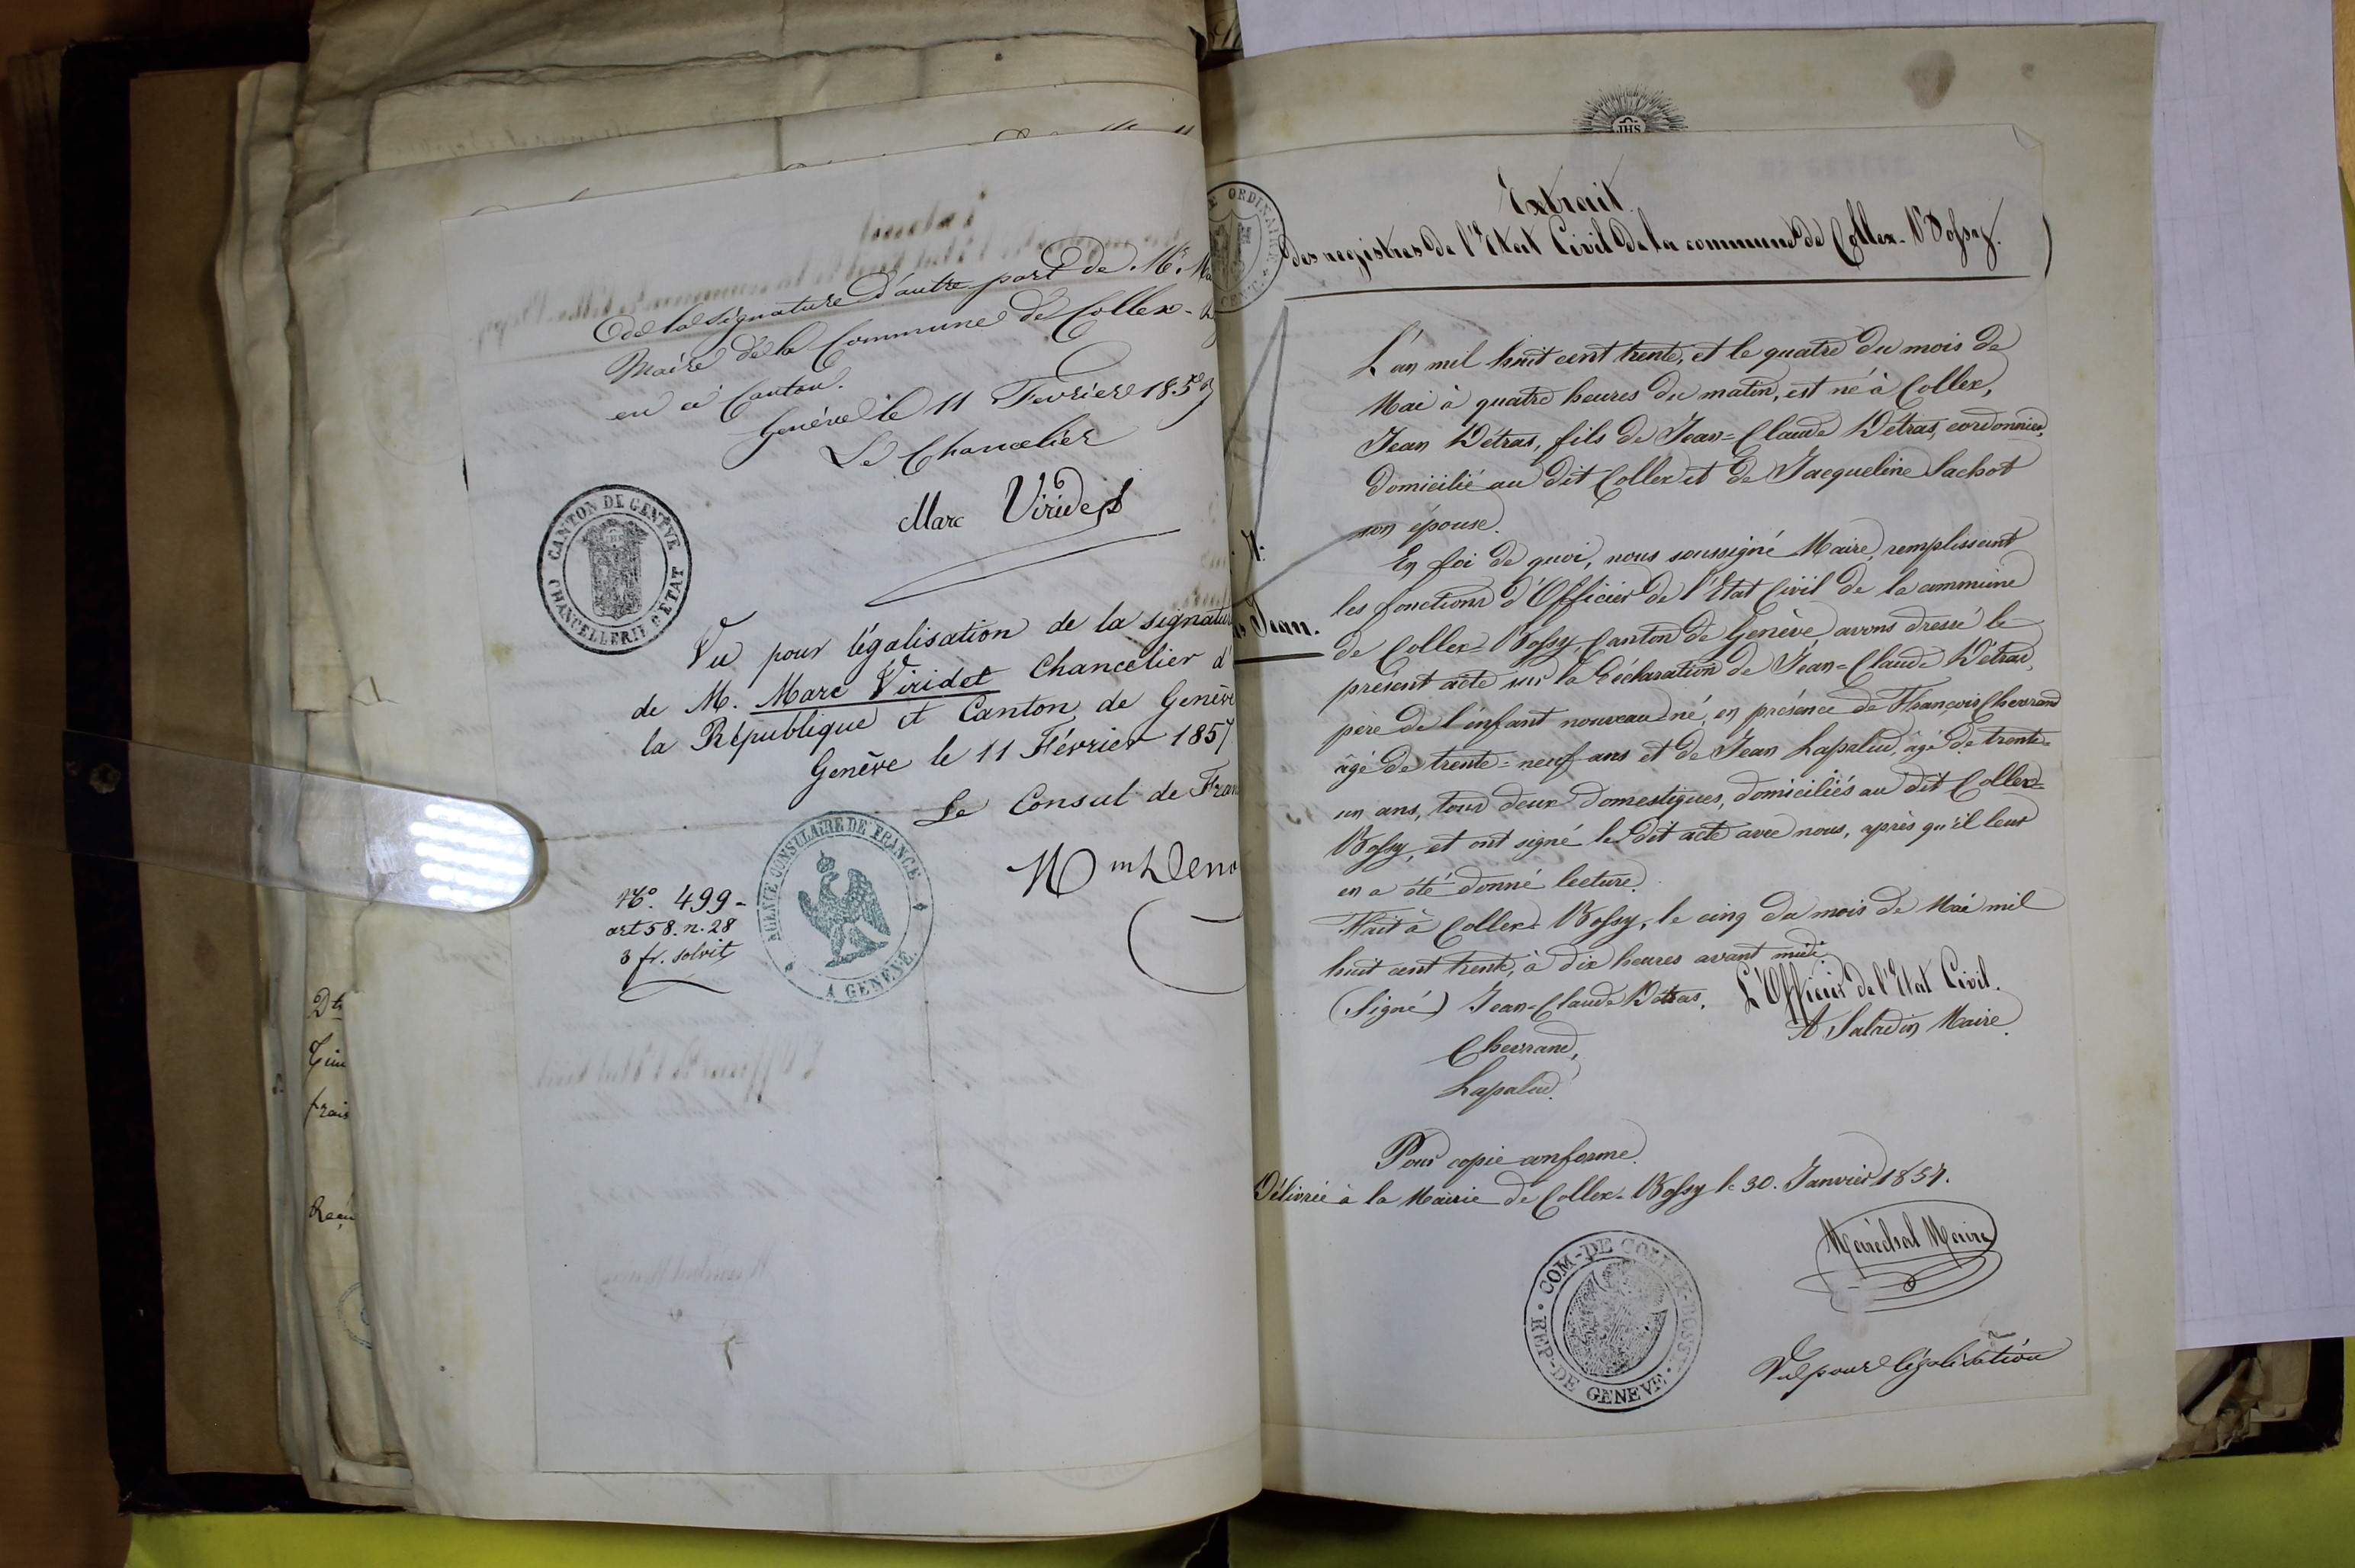 de la signature d'autre part de Mr. Ma
Maire de la Commune de Collex-
en ce Canton.
Genève le 11 Février 1857
Le Chancelier
Marc Viridet
CANTON DE GENÈVE
CHANCELLERIE D'ETAT
Vu pour légalisation de la signatur
de M. Marc Viridet Chancelier d'
la République et Canton de Genève
Genève le 11 Février 1857
Le Consul de Fran
No. 499-
art 58. n. 28
3 fr. solvit
AGENCE CONSULAIRE DE FRANCE
A GENÈVE
frais
JHS
E ORDINAIRE
CENT.
s Jean.
Extrait
des registres de l'Etat Civil de la commune de Collex-Bossy.
L'an mil huit cent trente, et le quatre du mois de
Mai à quatre heures du matin, est né à Collex,
Jean Détras, fils de Jean=Claude Détras, cordonnier,
domicilié au dit Collex et de Jacqueline Sachot
son épouse.
En foi de quoi, nous soussigné Maire, remplissant
les fonctions d'Officier de l'Etat Civil de la commune
de Collex=Bossy, Canton de Genève, avons dressé le
présent acte sur la déclaration de Jean=Claude Détras,
père de l'enfant nouveau=né, en présence de François Chevrand
âgé de trente=neuf ans et de Jean Lapalud, âgé de trente=
un ans, tous deux domestiques, domiciliés au dit Collex=
Bossy, et ont signé le dit acte avec nous, après qu'il leur
en a été donné lecture.
Fait à Collex=Bossy, le cinq du mois de Mai mil
huit cent trente, à dix heures avant midi.
(Signé) Jean=Claude Détras. L'Officier de l'Etat Civil.
Chevrand, A Saladin Maire.
Lapalud.
Pour copie conforme.
Délivrée à la Mairie de Collex-Bossy le 30. Janvier 1857.
Maréchal Maire
COM-DE COLLEX-BOSSY
REP-DE GENEVE
Vu pour légalisation